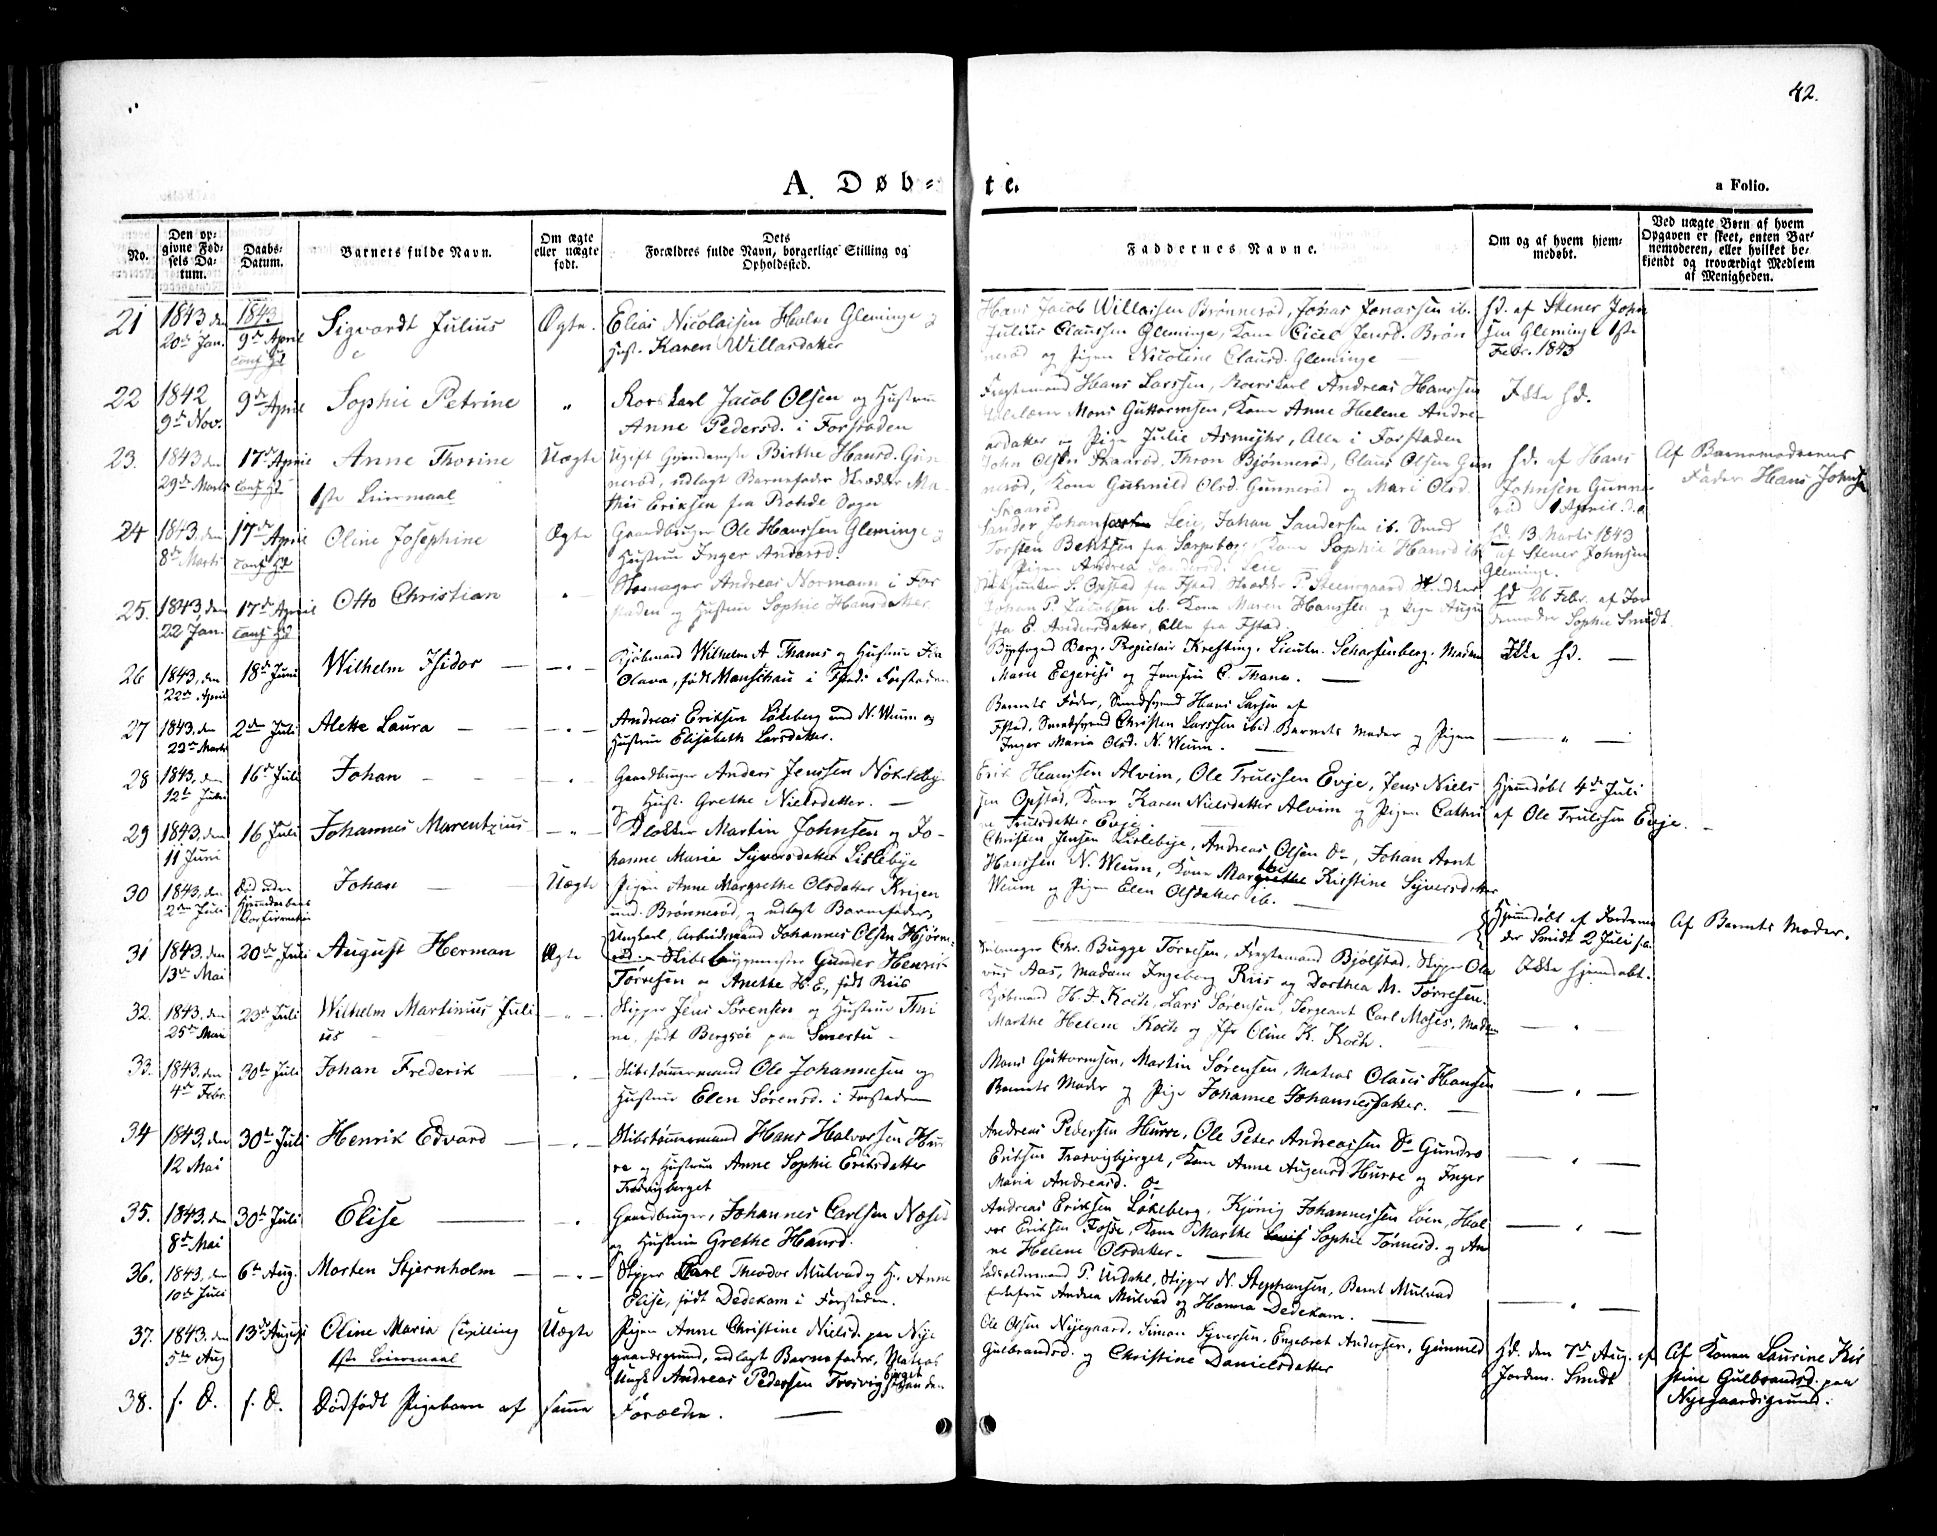 42.
A. Døb=te.
a Folio.
No.
Den opgivne Fødsels Datum.
Daabs-Datum.
Barnets fulde Navn.
Om ægte eller uægte født.
Dets Forældres fulde Navn, borgerlige Stilling og Opholdssted.
Faddernes Navne.
Om og af hvem hjemmedøbt.
Ved uægte Børn af hvem Opgaven er skeet, enten Barnemoderen, eller hvilket bekjendt og troværdigt Medlem af Menigheden.
21 1843, den 20de Jan. 1843 9de April conf. hd Sigvardt Julius Ægte. Elias Nicolaisen Holm Gleminge og
Hust. Karen Willasdatter
Hans Jacob Willaisen Brønnerød, Jonas Jonassen ib.
Julius Claussen Gleminge, Kone Cicel Jensd. Brøn
nerød og Pigen Nicoline Clausd. Gleminge
hd. af Stener John
sen Gleminge 1ste
Febr. 1843
22 1842 9de Nov. 9de April Sophie Petrine " Rorskarl Jacob Olsen og Hustrue
Anne Pedersd. i Forstaden
Hans Larssen, Andreas Hanssen
Mons Guttormsen, Kone Anne Helene Andre
asdatter og Pige Julie Asmejhr, Alle i Forstaden
Ikke hd.
23. 1843 den 29de Marts 17de April conf. hd Anne Thorine
1ste Leiermaal
Uægte Ugift Birthe Hansd. Gun
nerød, udlagt Barnefader Ma
this Eriksen fra Sogn
John Olsen Skaarød, Thron Bjønnerød, Claus Olsen Gun
nerød, Kone Guhnild Olsd. Gunnerød og Mari Olsd.
Skaarød
hd. af Hans
Johnsen Gunne
rød 1 April d.a.
Af Barnemoderens
Fader Hans Johnsen
24 1843, den 8de Marts 17de April conf. hd Oline Josephine Ægte Gaardbruger Ole Hanssen Gleminge og
Hustrue Inger Andersd.
Sander Johan Leie, Johan Sandersen ib. Smed
Torsten fra Sarpsborg, Kone Sophie Hansd ib.
Pigen Andrea Leie
hd. 13 Marts 1843
af Stener Johnsen
Gleminge.
25. 1843, den 22 Jan. 17de April conf. hd Otto Christian Andreas Normann i For
staden og Hustrue Sophie Hansdatter
S. Opstad fra Fstad,
Johan P. Jacobsen ib. Kone Maren Hanssen og Pige Augu
sta E. Andersdatter, Alle fra Fstad.
hd 26 Febr. af Jor
demoder Sophie Smidt.
26 1843, den 22de April 18de Juni Wilhelm Isidor — " — Kjøbmand Wilhelm A Thams og Hustrue
Olava, født i Fstads Forstaden
Byfoged Berg. Propietair Krefting, Lieutn. Scharfenberg, Madam
Marie og Jomfru C. Thams. —
Ikke hd. —
27 1843, den 23de Marts 2den Juli Alette Laura — — " — Andreas Eriksen Løkeberg und N. Weum og
Hustrue Elisabeth Larsdatter.
Barnets Fader, Hans Larsen af
Fstad, Christen Larssen ibid Barnets Moder og Pigen
Inger Maria Olsd. N. Weum. —
— " —
28 1843, den 12te Juli 16de Juli Johan — " Gaardbruger Anders Jenssen Nokleby
og Hust. Grethe Nielsdatter. —
Erik Hanssen Alvim, Ole Trulssen Evje, Jens Niels
sen Opstad, Kone Karen Nielsdatter Alvim og Pigen Cathri
ne Trulsdatter Evje.
Hjemdøbt 4de Juli
af Ole Trulssen Evje.
29 1843, den 11 Juni 16 Juli Johannes Marentzius — " — Klokker Martin Johnsen og Jo-
hanne Marie Syversdatter Lislebye
Christen Jensen Lislebye, Andreas Olsen Do, Johan Arnt
Hanssen N. Weum, Kone Kirstine Syversdatter
Weum og Pigen Elen Olsdatter ib. —
30 1843, den 2den Juli Død uden Hjemmedaabens Confirmation Johan — Uægte Pigen Anne Margrethe Olsdatter Krigen
und. Brønnerød, og udlagt Barnefader,
Ungkarl, Arbeidsmand Johannes Olsen
Hjemdøbt af Jordemo
der Smidt 2 Juli s.a.
Af Barnets Moder.
31 1843, den 13de Mai 20de Juli August Herman Ægte Skibsbygmester Gunder Henrik
Tørresen og Anethe H. E., født Riis
Chr. Bugge Tørresen, Bjølstad, Skipper Ola
vus Aas, Madam Ingeborg Riis og Dorthea M. Tørresen.
Ikke hjemdøbt.
32. 1843, den 25de Mai 23de Juli Wilhelm Martinius Juli
us — " — Skipper Jens Sørensen og Hustrue Thri
ne, født Bergsøe paa Smertu —
Kjøbmand H. J. Koch, Lars Sørensen, Sergeant Carl Moses, Madam
Marthe Helene Koch og Jfr Oline K. Koch. — " —
33. 1843, den 4de Febr. 30te Juli Johan Frederik — " Skibstømmermand Ole Johannesen og
Hustrue Elen Sørensd. i Forstaden
Mons Guttormsen, Martin Sørensen, Matros Olaus Hansen
Barnets Moder og Pige Johanne Johannesdatter. — " —
34 1843, den 12 Mai 30te Juli Henrik Edvard — " — Skibstømmermand Hans Halvorsen Hur
re og Hustrue Anne Sophie Eriksdatter
Trosvigberget
Andreas Pedersen Hurre, Ole Peter Andreassen Do Gundro
Eriksen Trosvigbjerget, Kone Anne Hurre og Inger
Maria Andreasd. Do — " —
35. 1843, den 8de Mai 30te Juli Elise — " Gaardbruger, Johannes Carlsen
og Hustrue Grethe Hansd.
Andreas Eriksen Løkeberg, Kjønig Johannessen Løen, Hal
vor Eriksen Fosse, Kone Marthe Sophie Tønnesd. og An
ne Helene Olsdatter. — " —
36. 1843, den 10de Juli 6te Aug. Morten Stjernholm — " — Skipper Carl Theodor Mulvad og H. Anne
Elise, født Dedekam i Forstaden.
P. Urdahl, Skipper N. Stephansen, Bernt Mulvad
Andrea Mulvad og Hanna Dedekam. — " —
37. 1843, den 5te Aug 13de August Oline Maria
1ste Leiermaal
Uægte Pigen Anne Christine Nielsd. paa Nye
gaardsgrund, udlagt Barnefader, Matros
Ungk Andreas Pedersen Trosvigberget
Ole Olsen Nyegaard, Simon Syversen, Engebret Andersen, Gunnild
Gulbrandsd. og Christine Danielsdatter
hd. den 7de Aug. af
Jordem. Smidt
Af Konen Laurine Kir
stine Gulbrandsd. paa
Nyegaardsgrund.
38. f. O. f. O. Dødfødt Pigebarn af samme Forældre. —